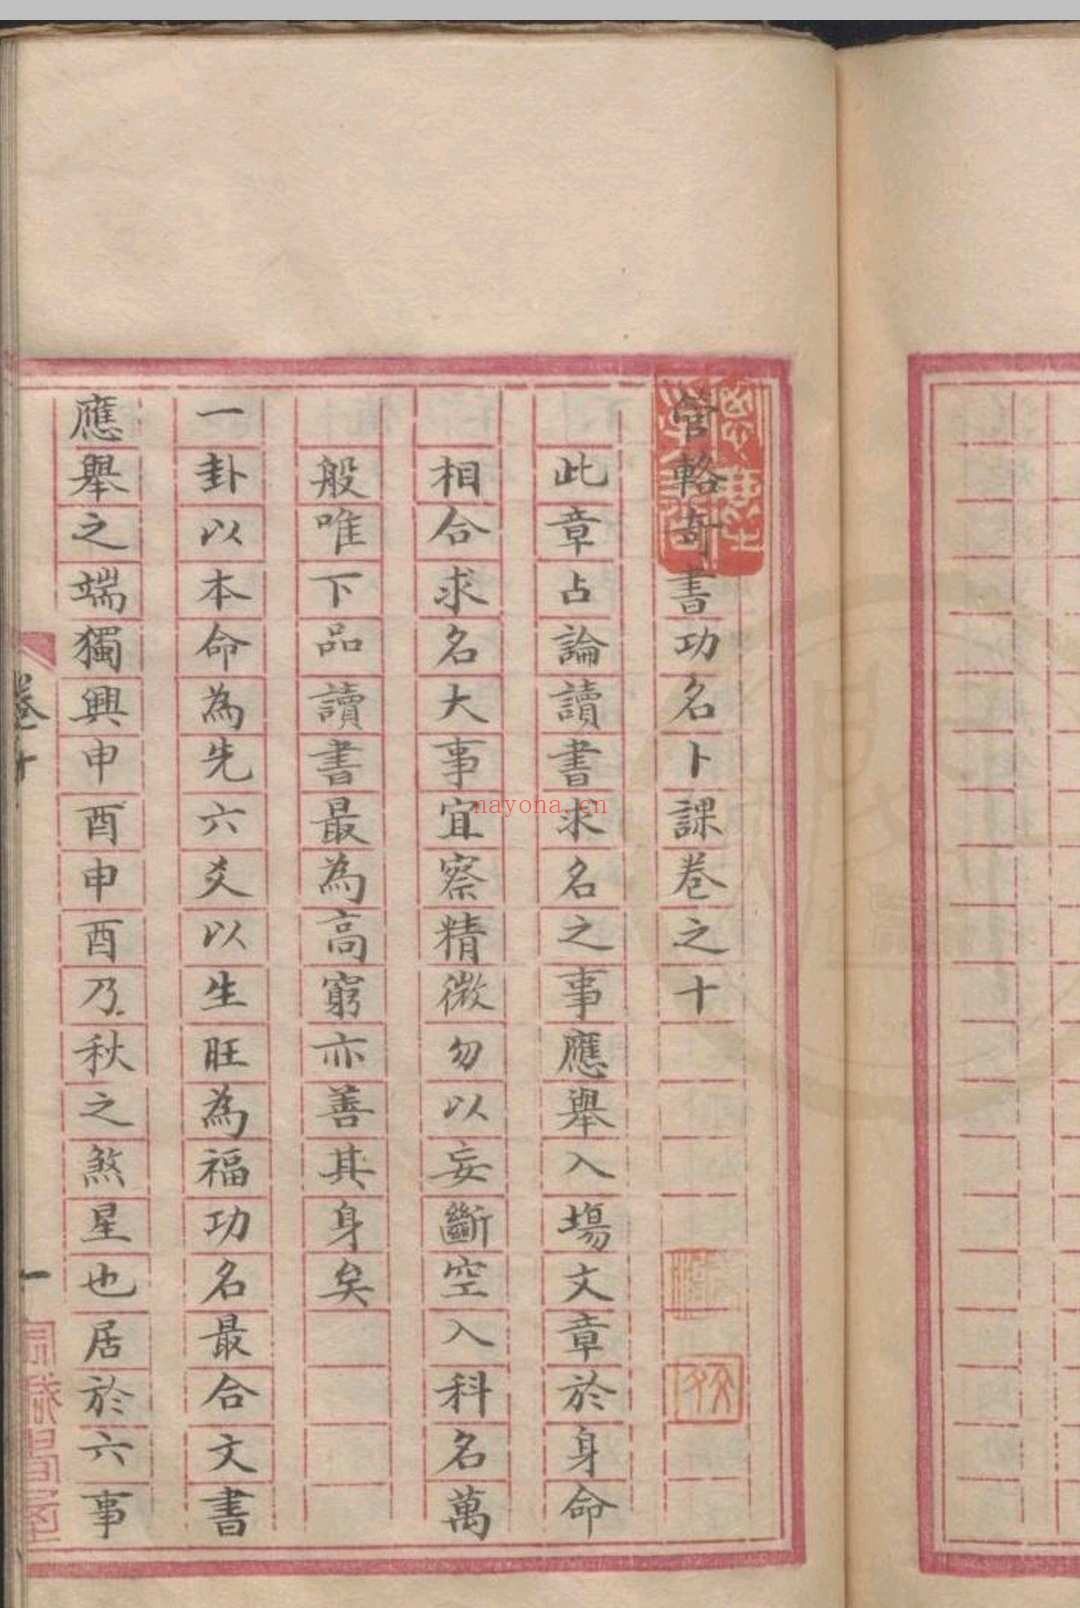 管輅奇書功名卜課卷之十
此章占論讀書求名之事應舉入場文章於身命
相合求名大事宜察精微勿以妄斷空入科名萬
般唯下品讀書最為高窮亦善其身矣
一卦以本命為先六爻以生旺為福功名最合文書
應舉之端獨興申酉申酉乃秋之煞星也居於六事
卷十
一
nayona.cn